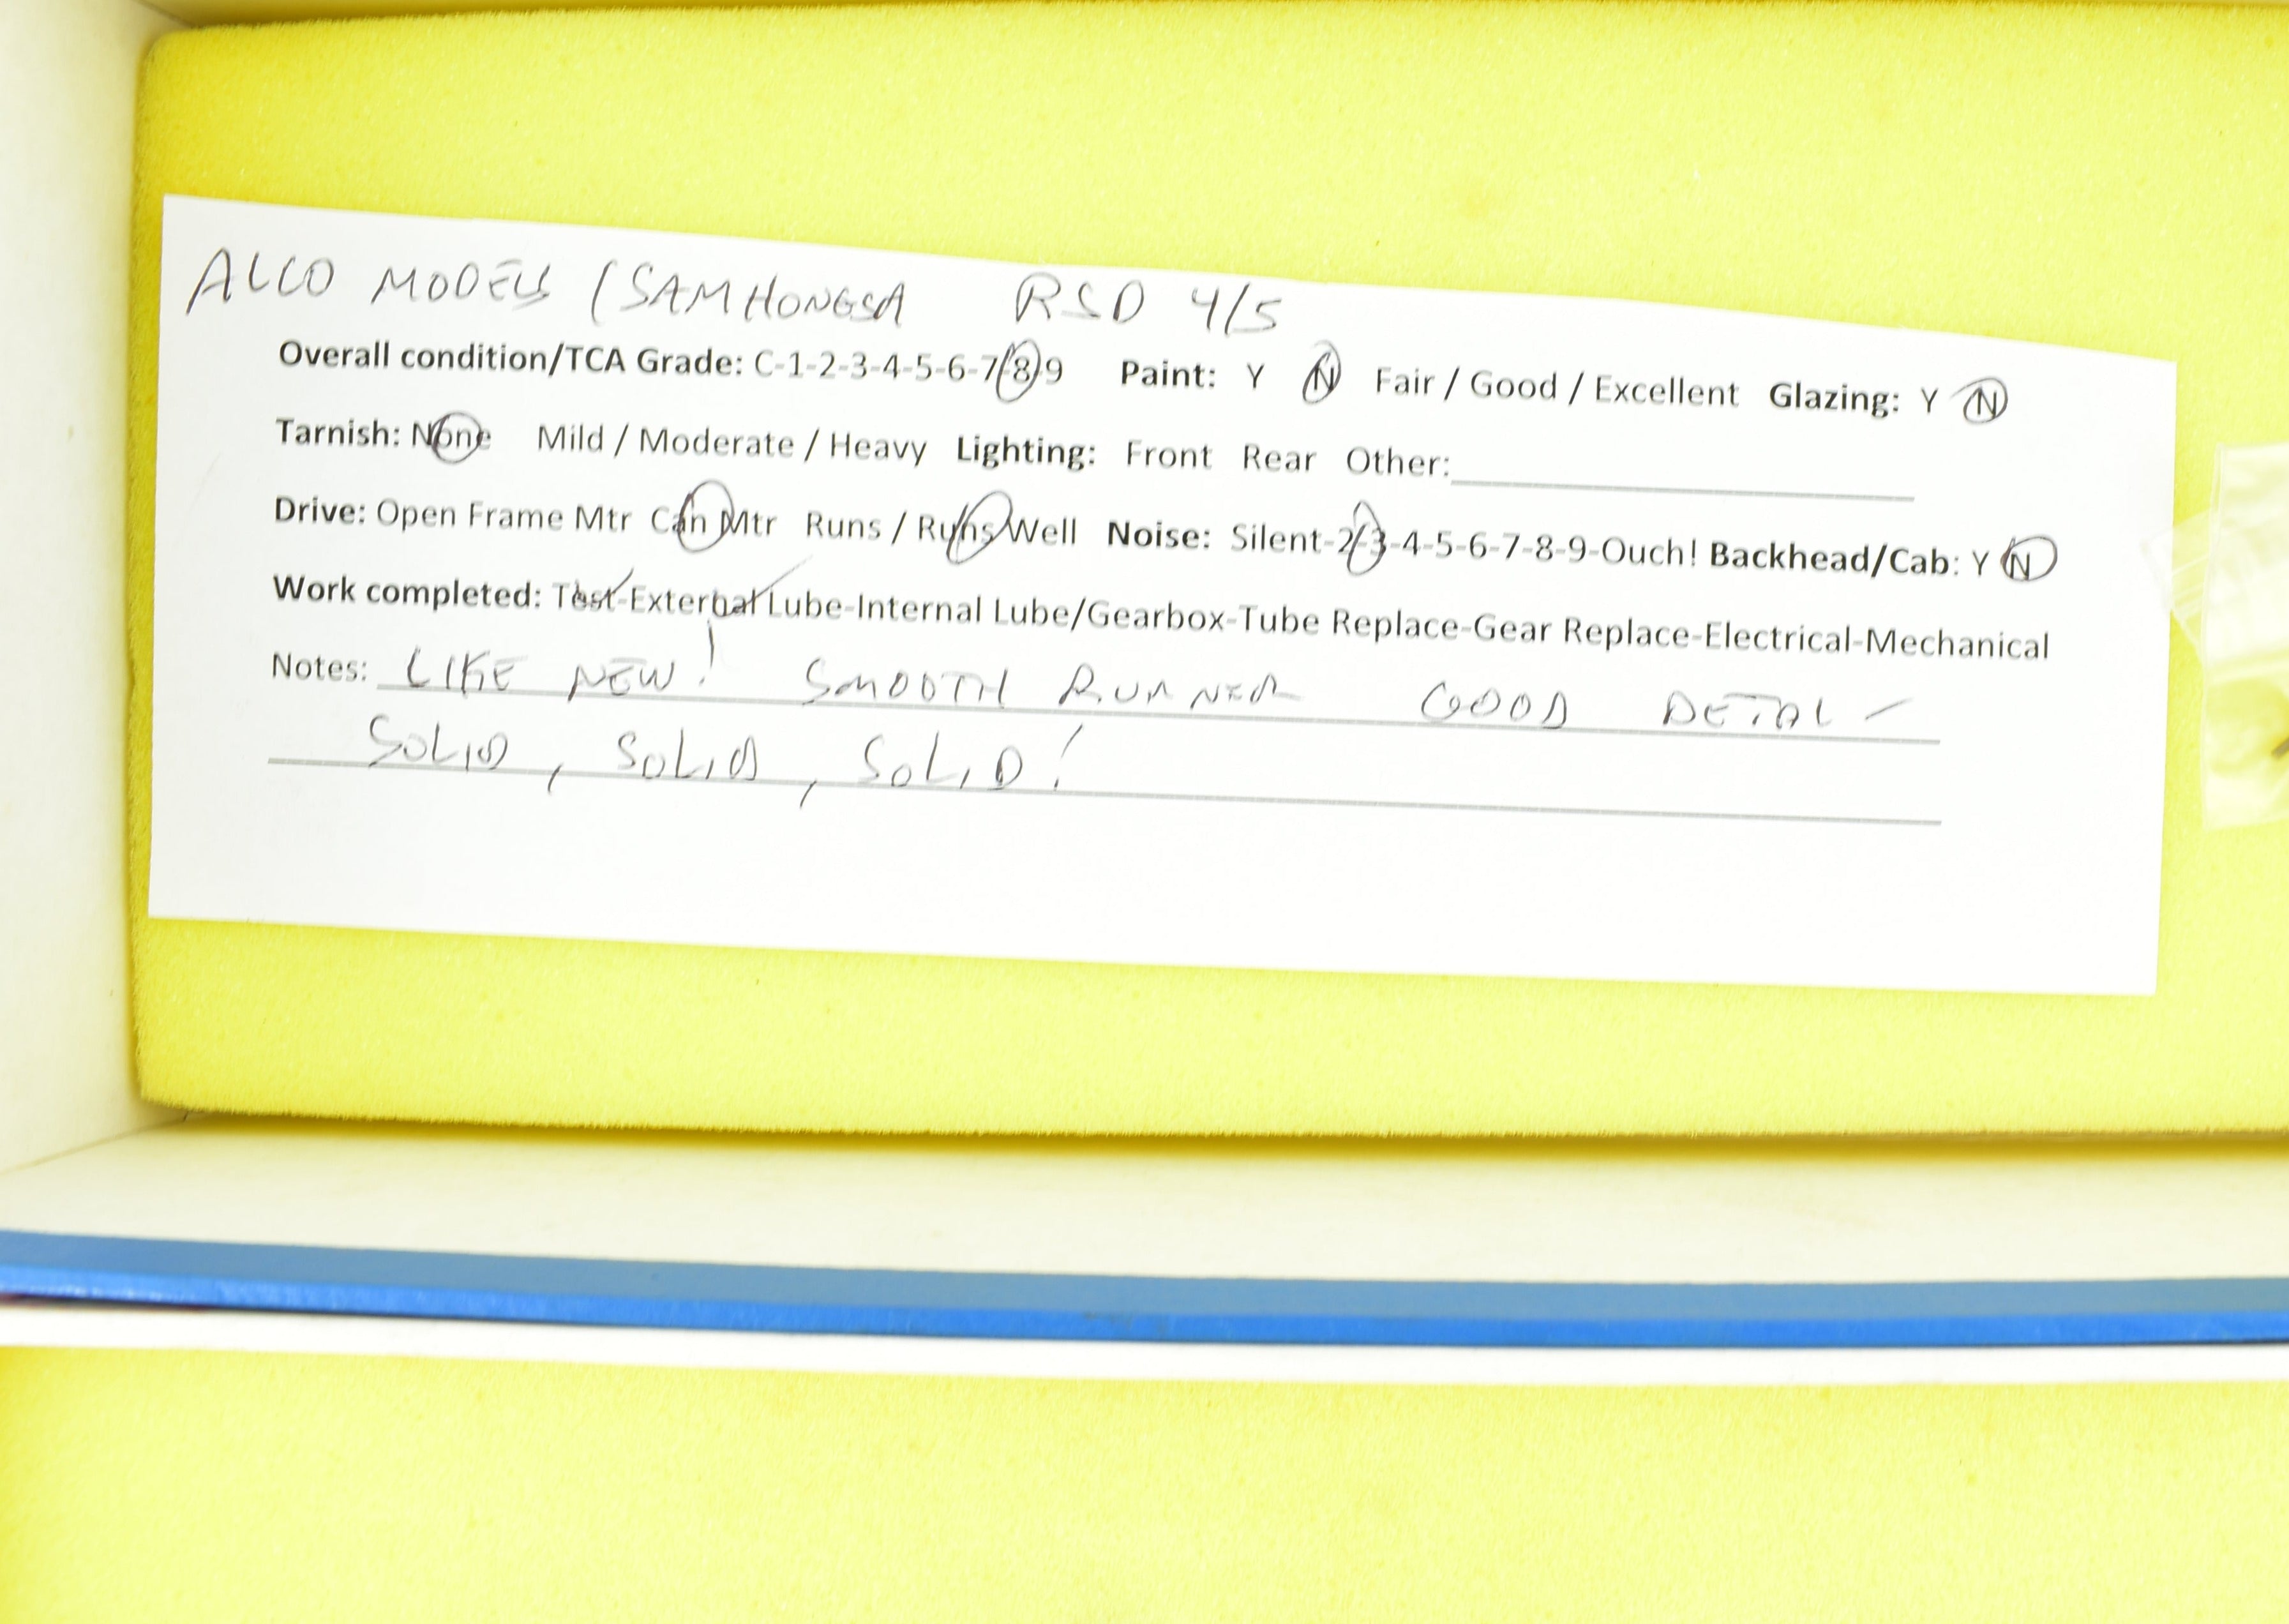 ALCO MODELS / SAMHONGSA RSD 4/5
Overall condition/TCA Grade: C-1-2-3-4-5-6-7-8-9 Paint: Y N Fair / Good / Excellent Glazing: Y N
Tarnish: None Mild / Moderate / Heavy Lighting: Front Rear Other:
Drive: Open Frame Mtr Can Mtr Runs / Runs Well Noise: Silent-2-3-4-5-6-7-8-9-Ouch! Backhead/Cab: Y N
Work completed: Test-External Lube-Internal Lube/Gearbox-Tube Replace-Gear Replace-Electrical-Mechanical
Notes: LIKE NEW! SMOOTH RUNNER GOOD DETAIL -
SOLID, SOLID, SOLID!